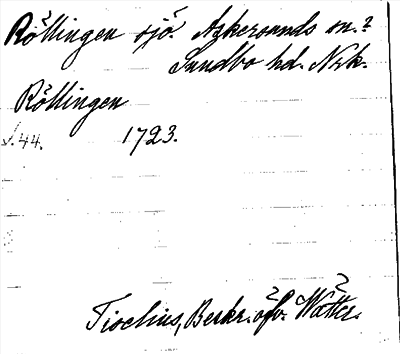 Röllingen sjö. Askersunds sn.?
Sundbo hd. Nrk.
Röllingen
s. 44. 1723.
Tiselius, Beskr. öfv. Wätter.